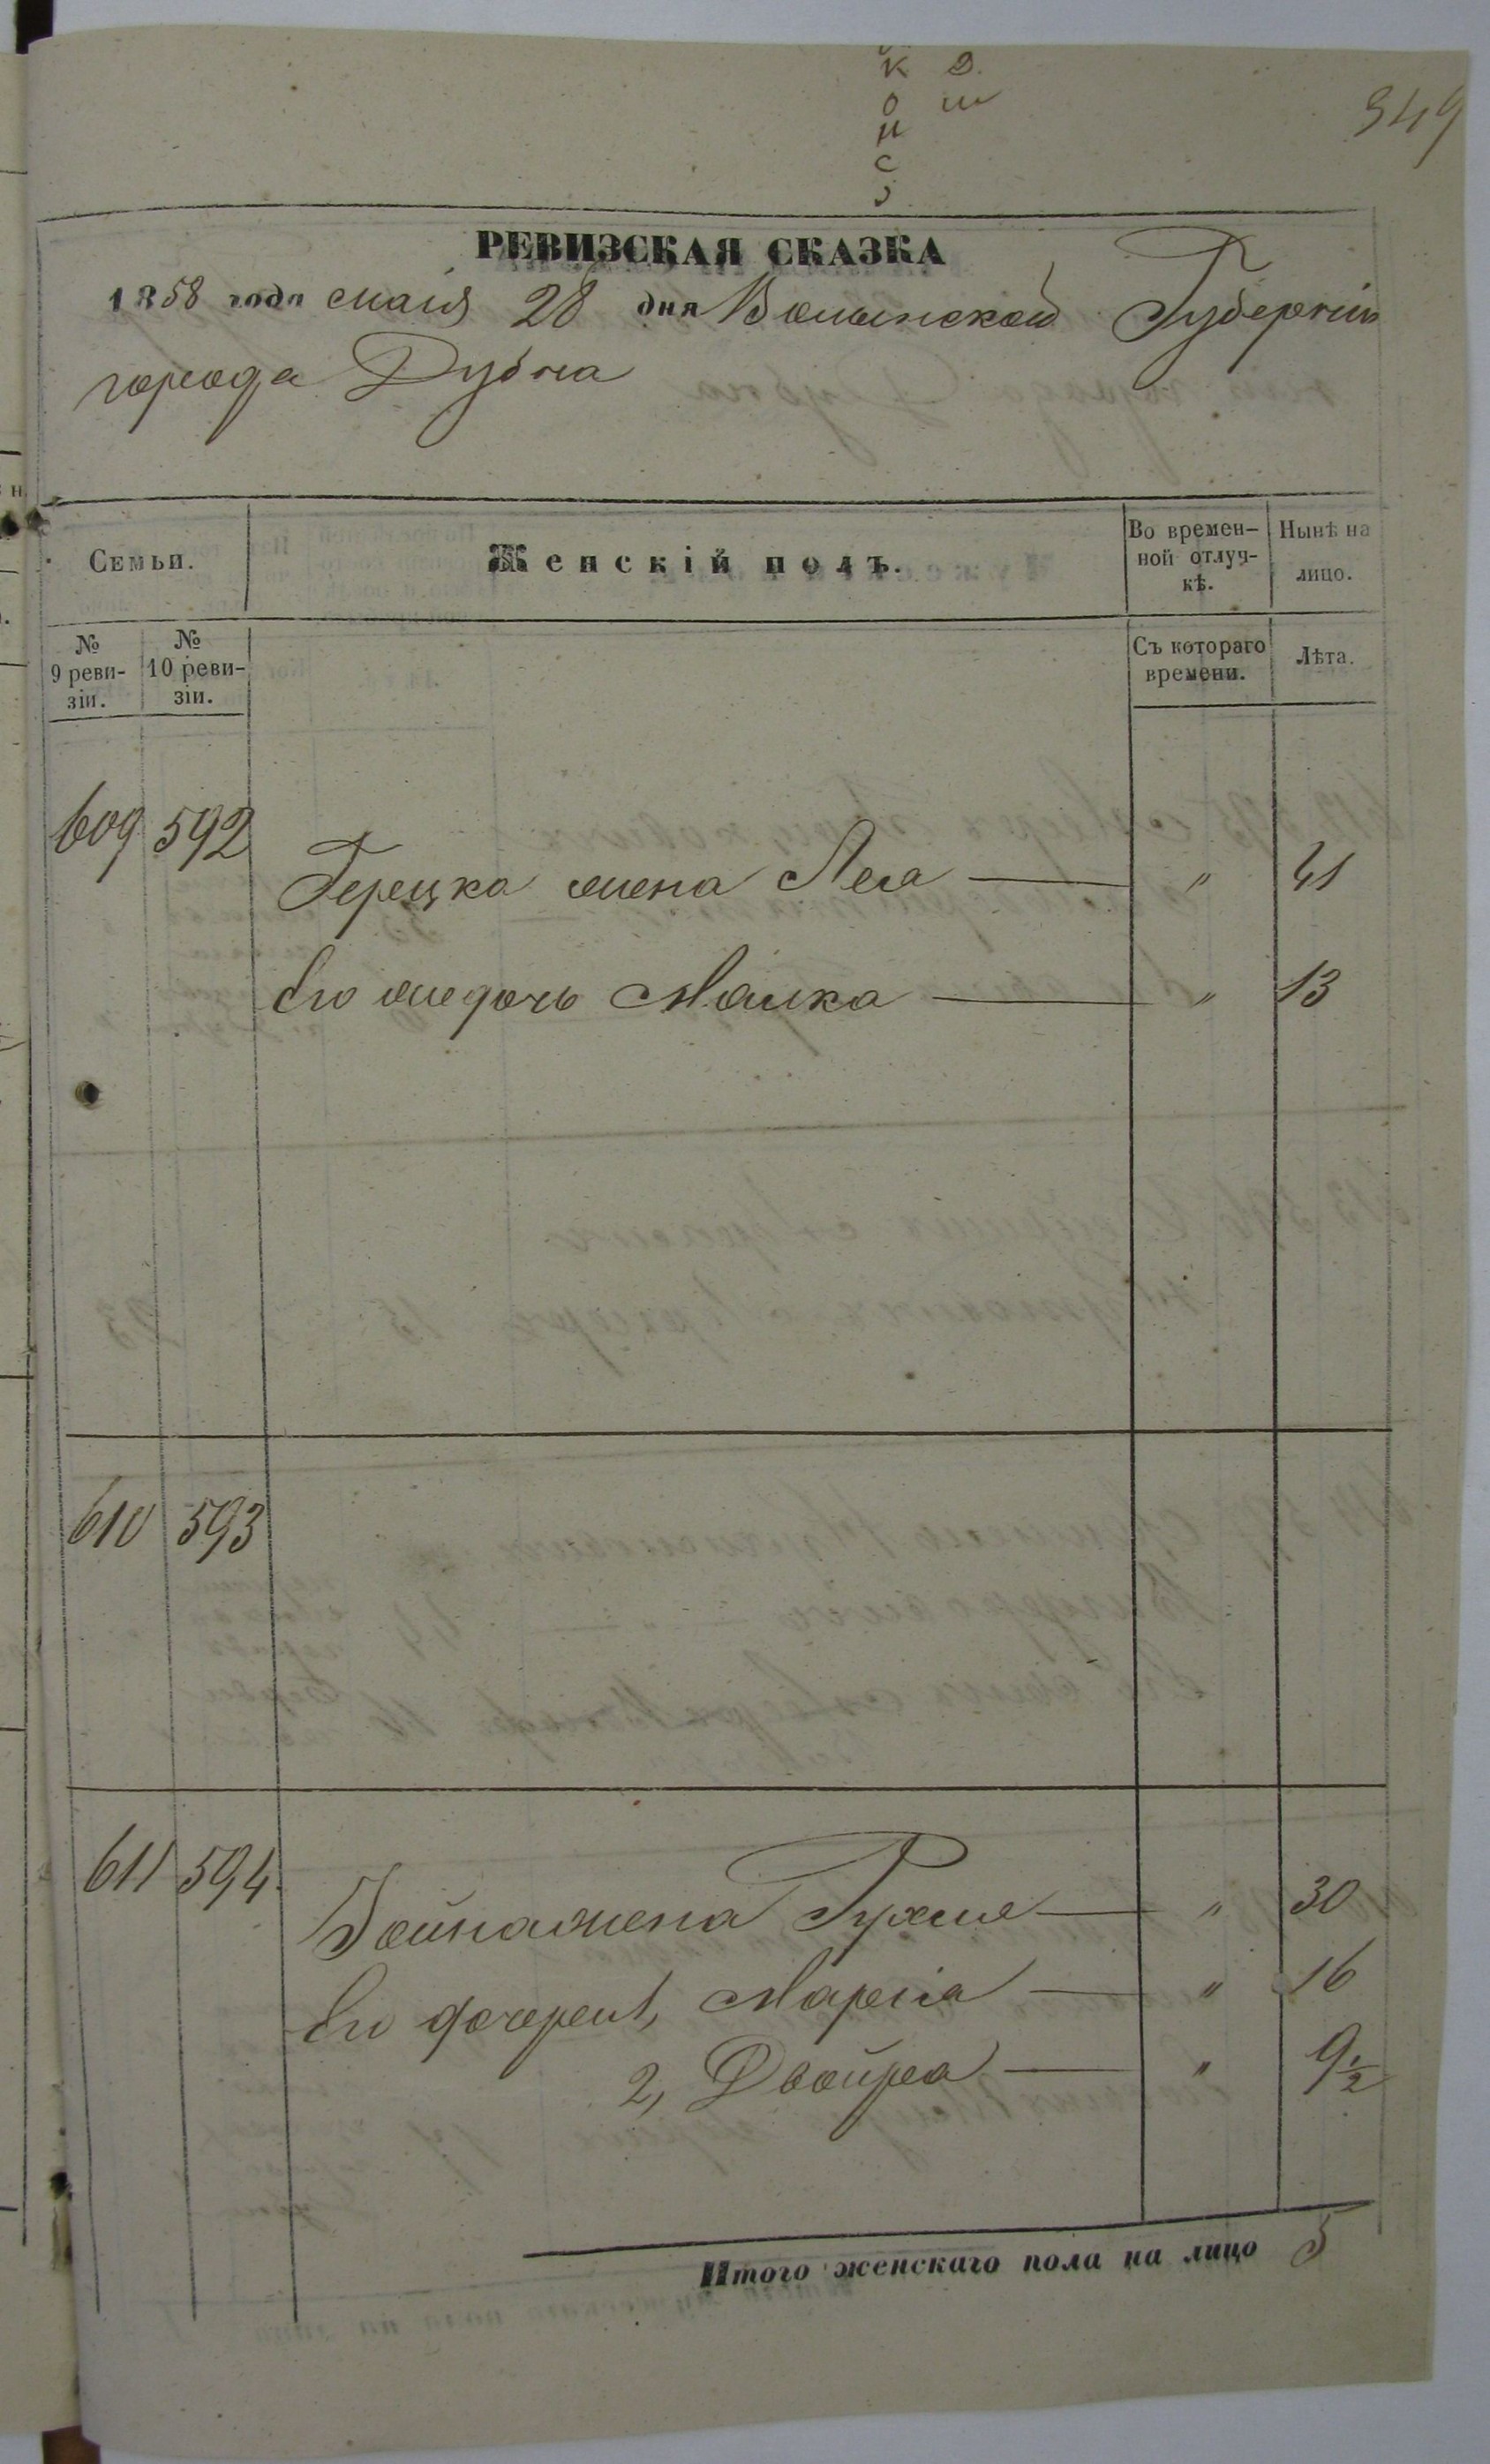 К Д.
О Ш
Н
С
349
РЕВИЗСКАЯ СКАЗКА
1858 года маія 28 дня Волынской Губерніи
города Дубна
Семьи.
Женскій полъ.
Во времен-
ной отлуч-
кѣ.
Нынѣ на
лицо.
№
9 реви-
зіи.
№
10 реви-
зіи.
Съ котораго
времени.
Лѣта.
609 592
Герецка жена Лея — " 41
Его же дочь Малка — " 13
610 593
611 594
жена Рухля — " 30
Его дочереи 1, Маріа — " 16
2, Двойра — " 9½
Итого женскаго пола на лицо 5